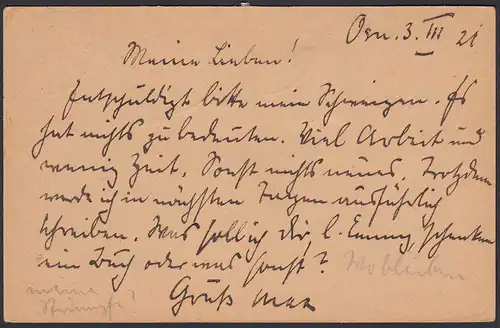 3. III 21
Meine Lieben!
Entschuldigt bitte mein Schweigen. Es
hat nichts zu bedeuten. Viel Arbeit und
wenig Zeit. Sonst nichts neues. Trotzdem
werde ich in nächsten Tagen ausführlich
schreiben. Was soll ich dir, l. Emmy, schenken
ein Buch oder was sonst? Wo bleiben
meine
Strümpfe?
Gruß Max